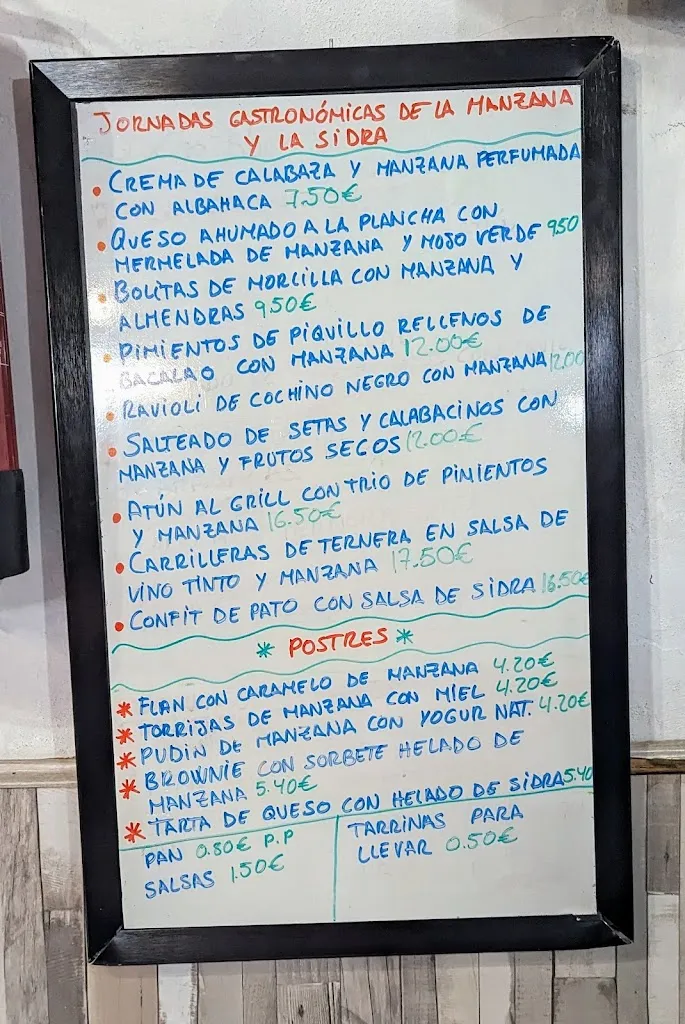 JORNADAS GASTRONÓMICAS DE LA MANZANA
Y LA SIDRA
• CREMA DE CALABAZA Y MANZANA PERFUMADA
CON ALBAHACA 7.50€
• QUESO AHUMADO A LA PLANCHA CON
MERMELADA DE MANZANA Y MOJO VERDE 9.50
• BOLITAS DE MORCILLA CON MANZANA Y
ALMENDRAS 9.50€
• PIMIENTOS DE PIQUILLO RELLENOS DE
BACALAO CON MANZANA 12.00€
• RAVIOLI DE COCHINO NEGRO CON MANZANA 12.00
• SALTEADO DE SETAS Y CALABACINOS CON
MANZANA Y FRUTOS SECOS 12.00€
• ATÚN AL GRILL CON TRIO DE PIMIENTOS
Y MANZANA 16.50€
• CARRILLERAS DE TERNERA EN SALSA DE
VINO TINTO Y MANZANA 17.50€
• CONFIT DE PATO CON SALSA DE SIDRA 16.50€
* POSTRES *
* FLAN CON CARAMELO DE MANZANA 4.20€
* TORRIJAS DE MANZANA CON MIEL 4.20€
* PUDIN DE MANZANA CON YOGUR NAT. 4.20€
* BROWNIE CON SORBETE HELADO DE
MANZANA 5.40€
* TARTA DE QUESO CON HELADO DE SIDRA 5.40
PAN 0.80€ P.P
SALSAS 1.50€
TARRINAS PARA
LLEVAR 0.50€